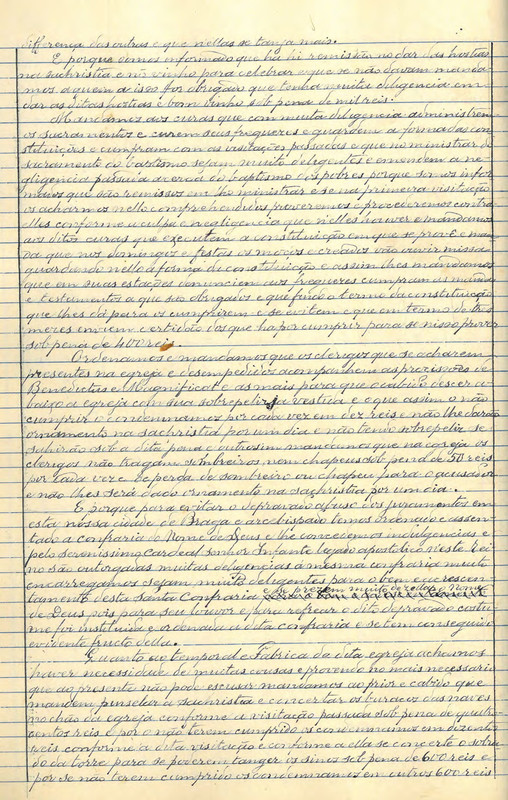 differença das outras e que nellas se tanja mais.
E porque somos informado que ha hi remissão no dar das hostias
na sachristia e no vinho para celebrar e que se não davam manda-
mos a quem a isso for obrigado que tenha muita diligencia em
dar as ditas hostias e bom vinho sob pena de mil reis.
Mandamos aos curas que com muita diligencia administrem
os sacramentos e curem seus freguezes e guardem a forma das con
stituições e cumpram com as visitações passadas e que no ministrar do
sacramento do baptismo sejam muito deligentes e emendem a ne-
gligencia passada acerca do baptismo dos pobres porque somos infor
mados que são remissos em lho ministrar e se na primeira visitação
os acharmos nello comprehendidos proveremos e procederemos contra
elles conforme a culpa e negligencia que nelles houver e mandamos
aos ditos curas que executem a constituição em que se prové e man-
da que nos domingos e festas os moços e creados vão ouvir missa
guardando nello a forma da constituição e assim lhes mandamos
que em suas estações denunciem aos freguezes cumpram as mandas
e testamentos a que são obrigados e que findo o termo da constituição
que lhes dá para os cumprirem e se evitem e que em termo de tres
mezes enviem certidão dos que ha por cumprir para se nisso prover
sob pena de 400 reis.
Ordenamos e mandamos que os clerigos que se acharem
presentes na egreja e desempedidos acompanhem as procissões de
Benedictus e Magnificat e as mais para que o cabido descer a-
baixo a egreja com sua sobrepeliz vestida e o que assim o não
cumprir o condemnamos por cada vez em dez reis e não lhe darão
ornamento na sachristia por um dia e não tendo sobrepeliz se
sahirão sob a dita pena e outrosim mandamos que na egreja os
clerigos não tragam sombreiros, nem chapeus sob pena de 50 reis
por cada vez e de perda do sombreiro ou chapeu para o acusador
e não lhes será dado ornamento na sachristia por um dia.
E porque para evitar o depravado abuso dos juramentos em
esta nossa cidade de Braga e arcebispado temos ordenado e assen-
tado a confraria do Nome de Deus e lhe concedemos indulgencias e
pelo serenissimo Cardeal senhor Infante legado apostolico neste Rei
no são outorgadas muitas indulgencias á mesma confraria muito
encarregamos sejam muito deligentes para o bem e acrescen-
tamento desta santa Confraria e se prezem muito de ella do Nome
de Deus pois para seu louvor e para refrear o dito depravado costu-
me foi instituida e ordenada a dita confraria e se tem conseguido
evidente fructo della.
Quanto ao temporal e Fabrica da dita egreja achamos
haver necessidade de muitas cousas e provendo no mais necessario
que ao presente não pode escusar mandamos ao prior e cabido que
mandem pinselar a sachristia e concertar os buracos das naves
no chão da egreja conforme a visitação passada sob pena de quatro
centos reis e por o não terem cumprido os condemnamos em duzentos
reis conforme a dita visitação e conforme a ella se concerte o sobra-
do da torre para se poderem tanger os sinos sob pena de 600 reis e
por se não terem cumprido os condemnamos em outros 600 reis